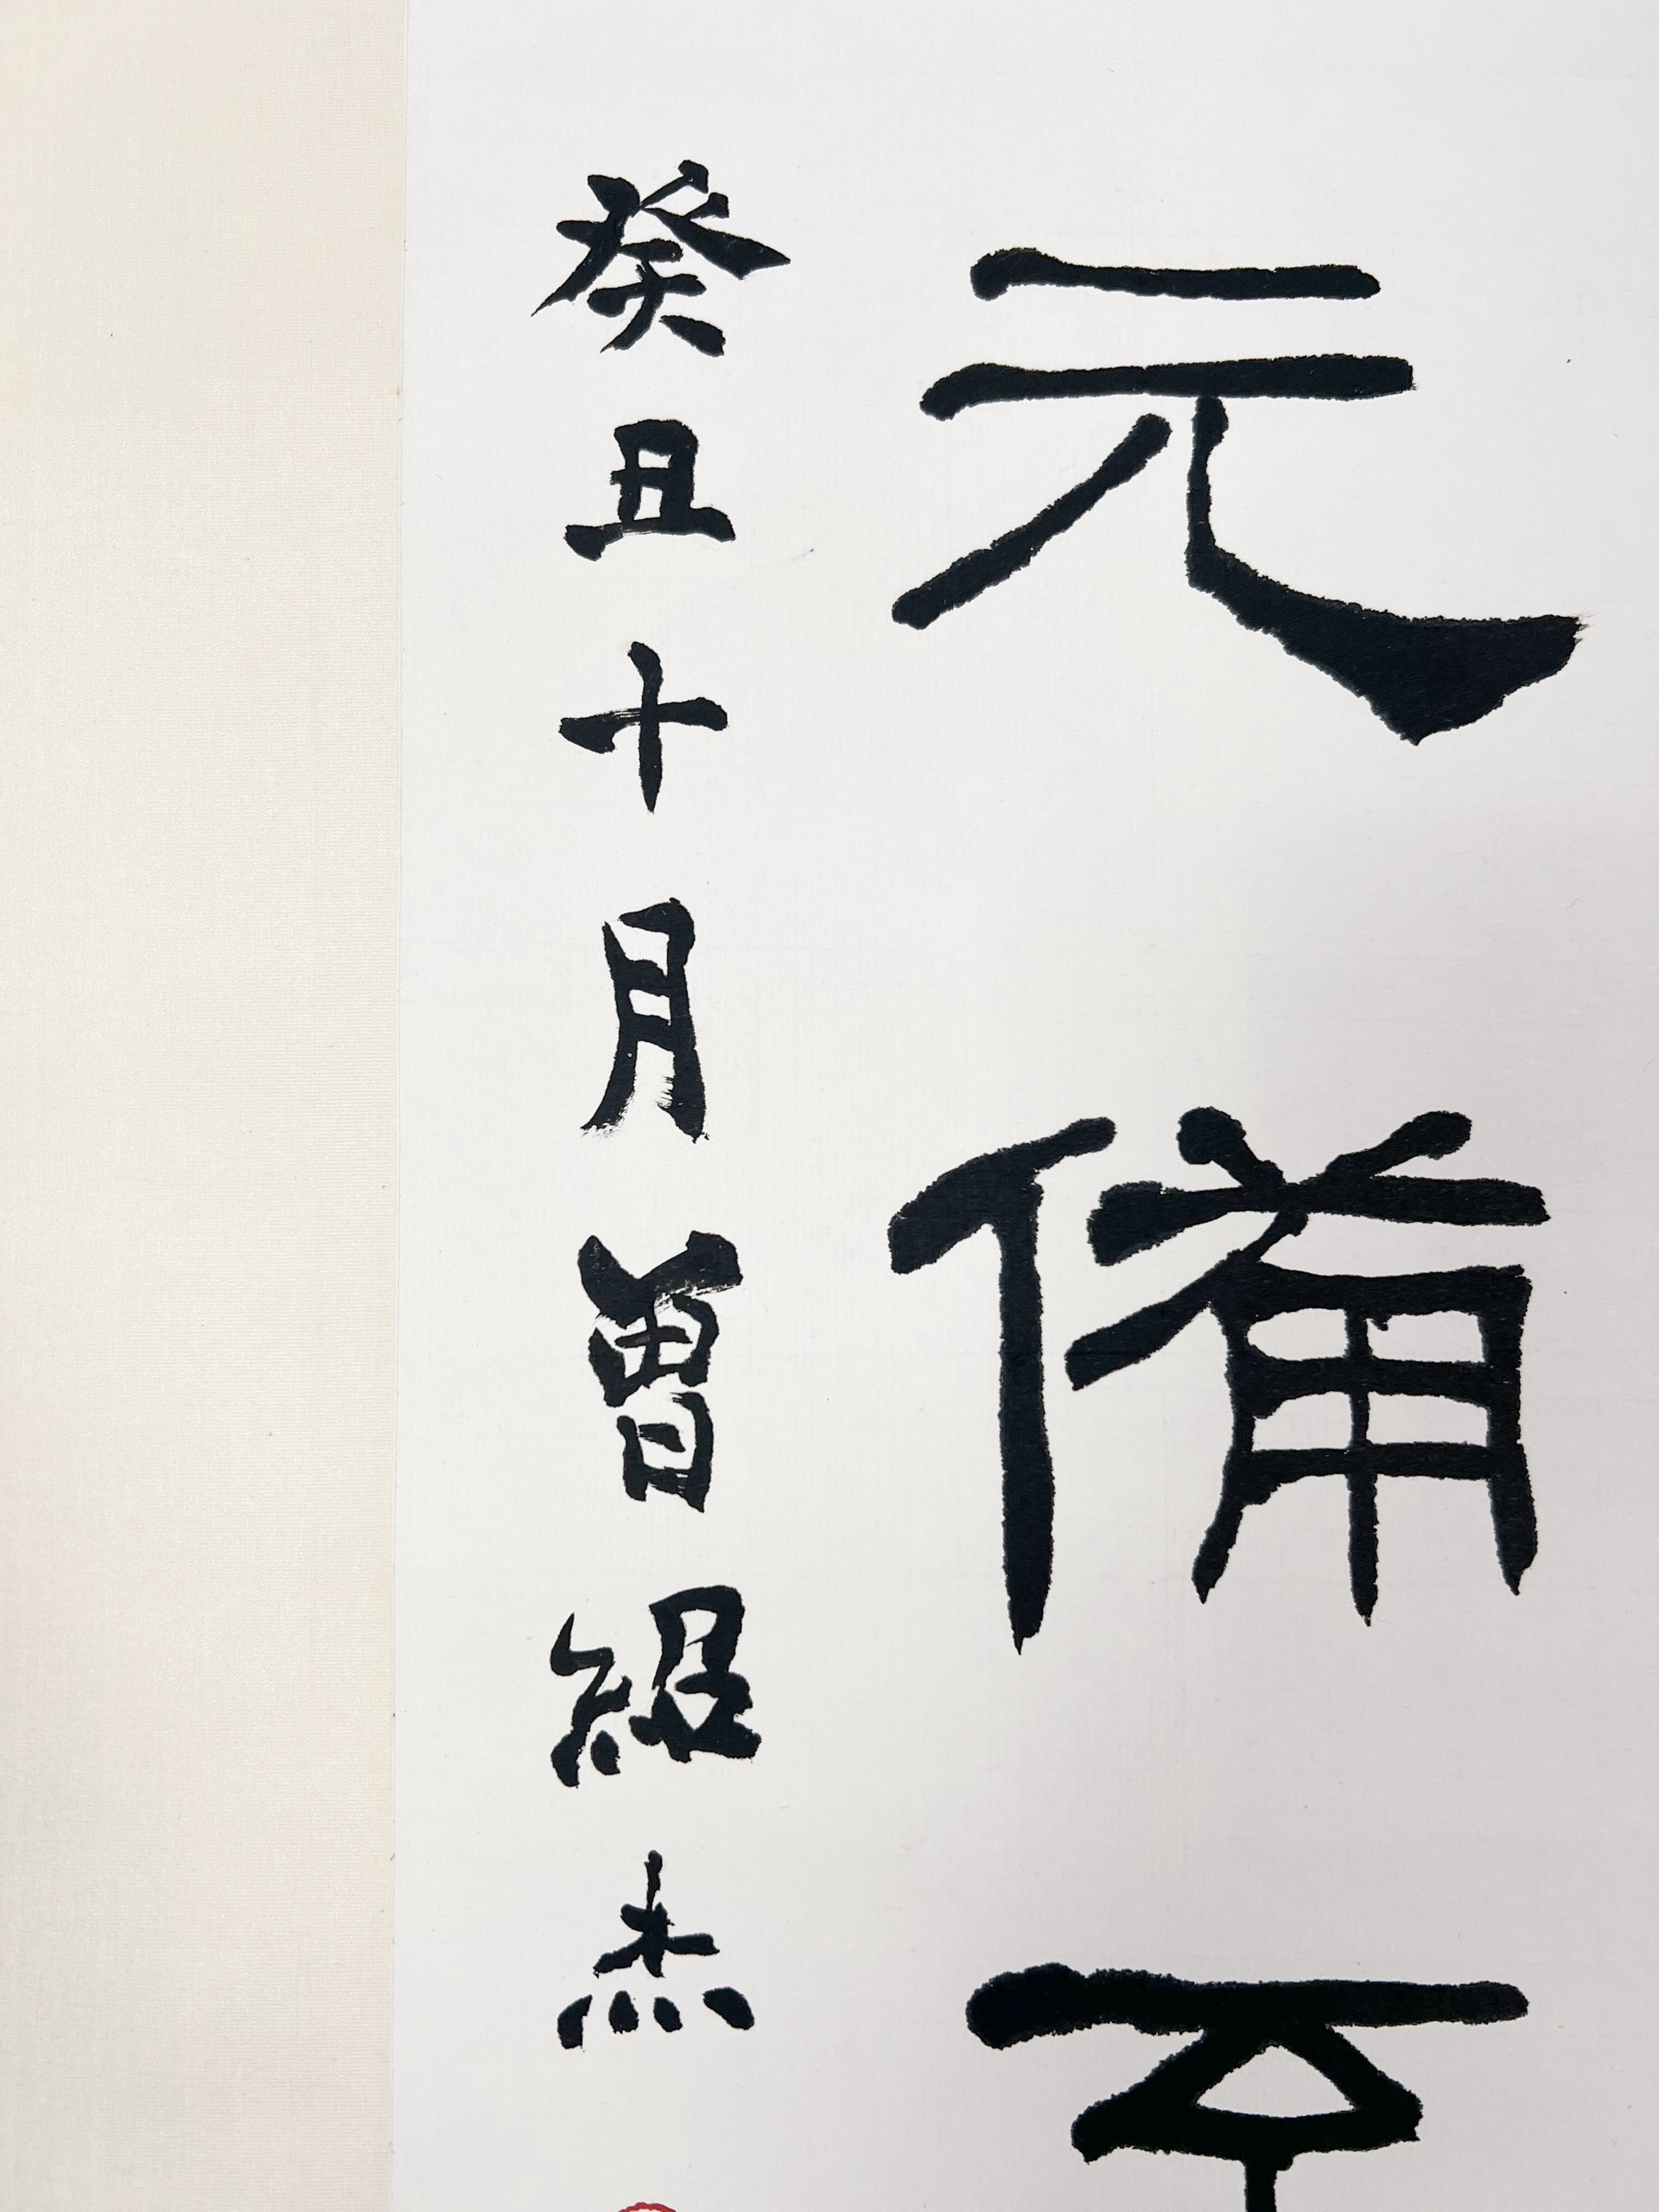 元備至
癸丑十月曾紹杰